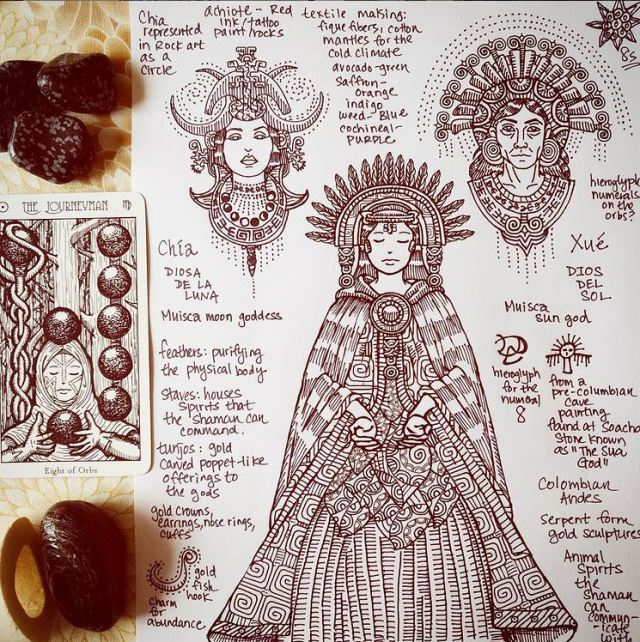 Chia
represented
in Rock art
as a
Circle
achiote - Red
ink/tattoo
paint/rocks
textile making:
fique fibers: cotton
mantles for the
cold climate
avocado-green
saffron-
orange
indigo
weed-Blue
cochineal-
PURPLE
85
hieroglyph
numerals
on the
orbs?
THE JOURNEYMAN
Eight of Orbs
Chía
DIOSA
DE LA
LUNA
Muisca moon goddess
feathers: purifying
the physical body
staves: houses
Spirits that
the Shaman can
command.
tunjos: gold
carved poppet-like
offerings to
the gods
gold crowns,
earrings, nose rings,
cuffs
gold
fish
hook
charm
for
abundance
Xué
DIOS
DEL
SOL
Muisca
sun god
hieroglyph
for the
numeral
8
from a
pre-columbian
cave
painting
found at Soacha
Stone known
as "The Sua
God"
Colombian
Andes
Serpent form
gold sculptures
Animal
Spirits
the
Shaman
can
commun
-icate
with